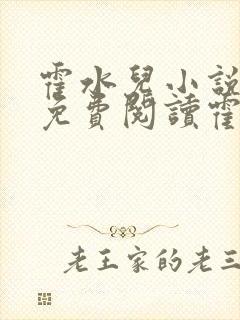 霍水兒小說
免費閱讀霍
老王家的老三